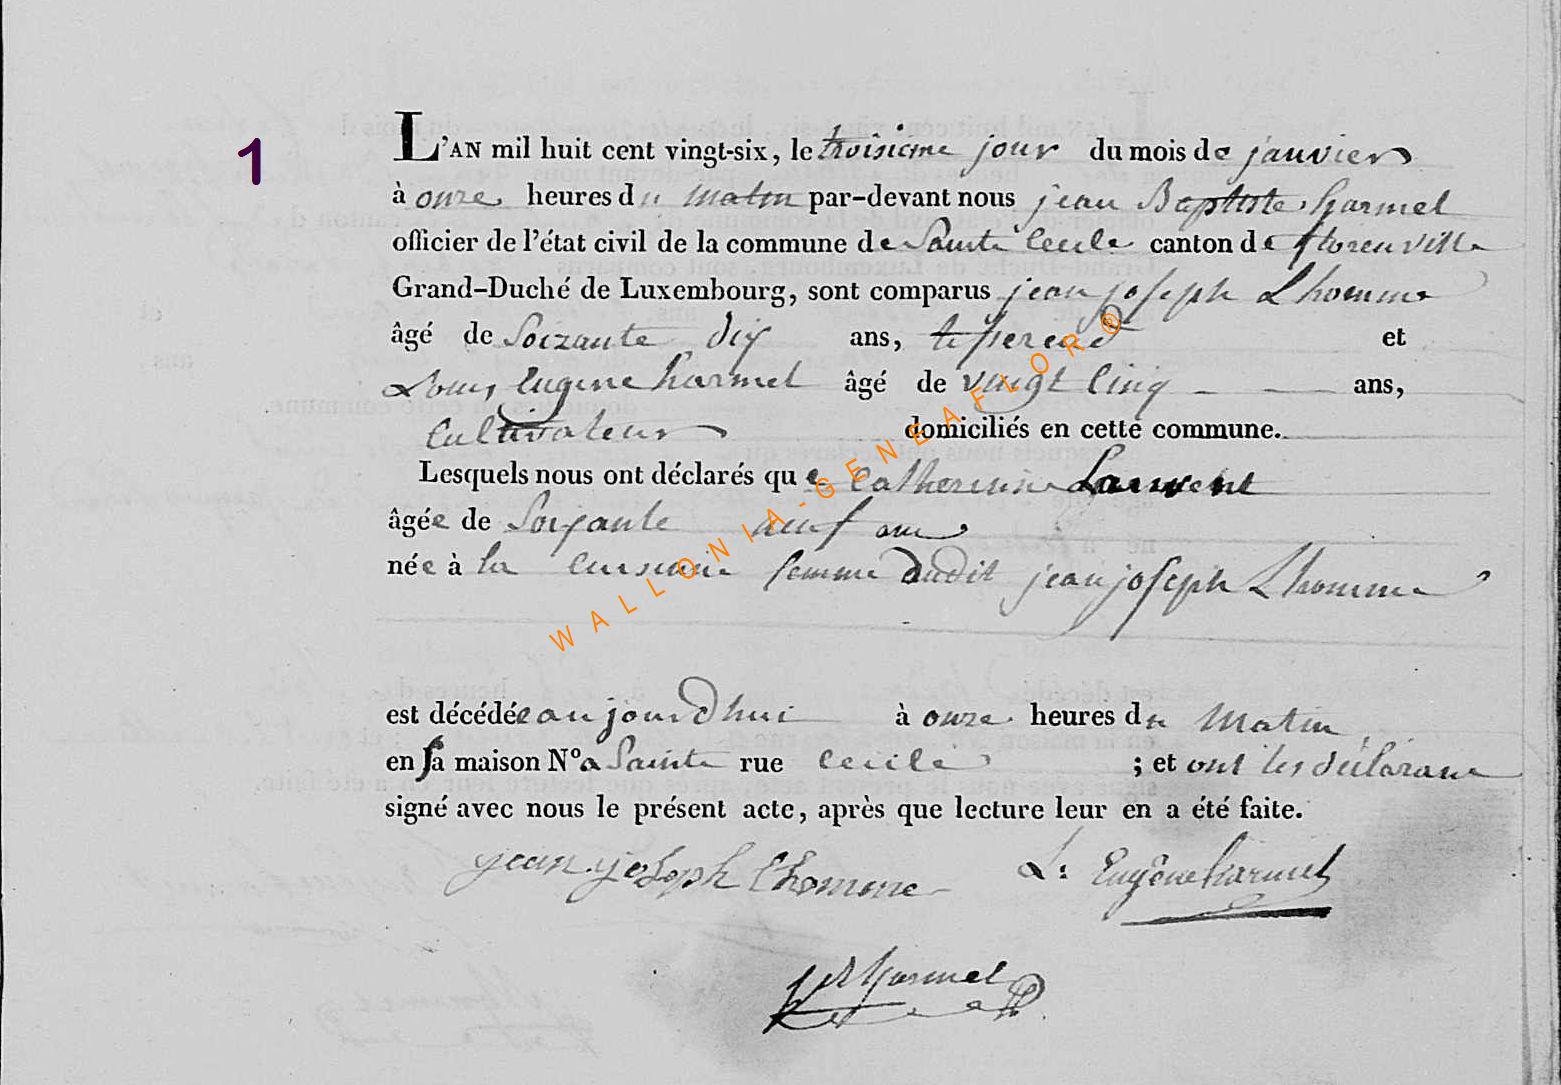 1
L'AN mil huit cent vingt-six, le troisième jour du mois de janvier
à onze heures du matin par-devant nous jean Baptiste harmel
officier de l'état civil de la commune de Sainte Cecile canton de florenville
Grand-Duché de Luxembourg, sont comparus jean joseph Lhomme
âgé de Soizante dix ans, tisserend et
Louis Eugene harmel âgé de vingt Cinq ans,
Cultivateur domiciliés en cette commune.
Lesquels nous ont déclarés que Catherinne Laurent
âgée de Soixante neuf ans
née à la femme dudit jean joseph Lhomme
est décédée aujourdhui à onze heures du Matin
en sa maison N° a Sainte rue Cecile ; et ont les déclarans
signé avec nous le présent acte, après que lecture leur en a été faite.
jean joseph Lhomme L: Eugêne harmel
harmel
WALLONIA-GENEAFLOR®